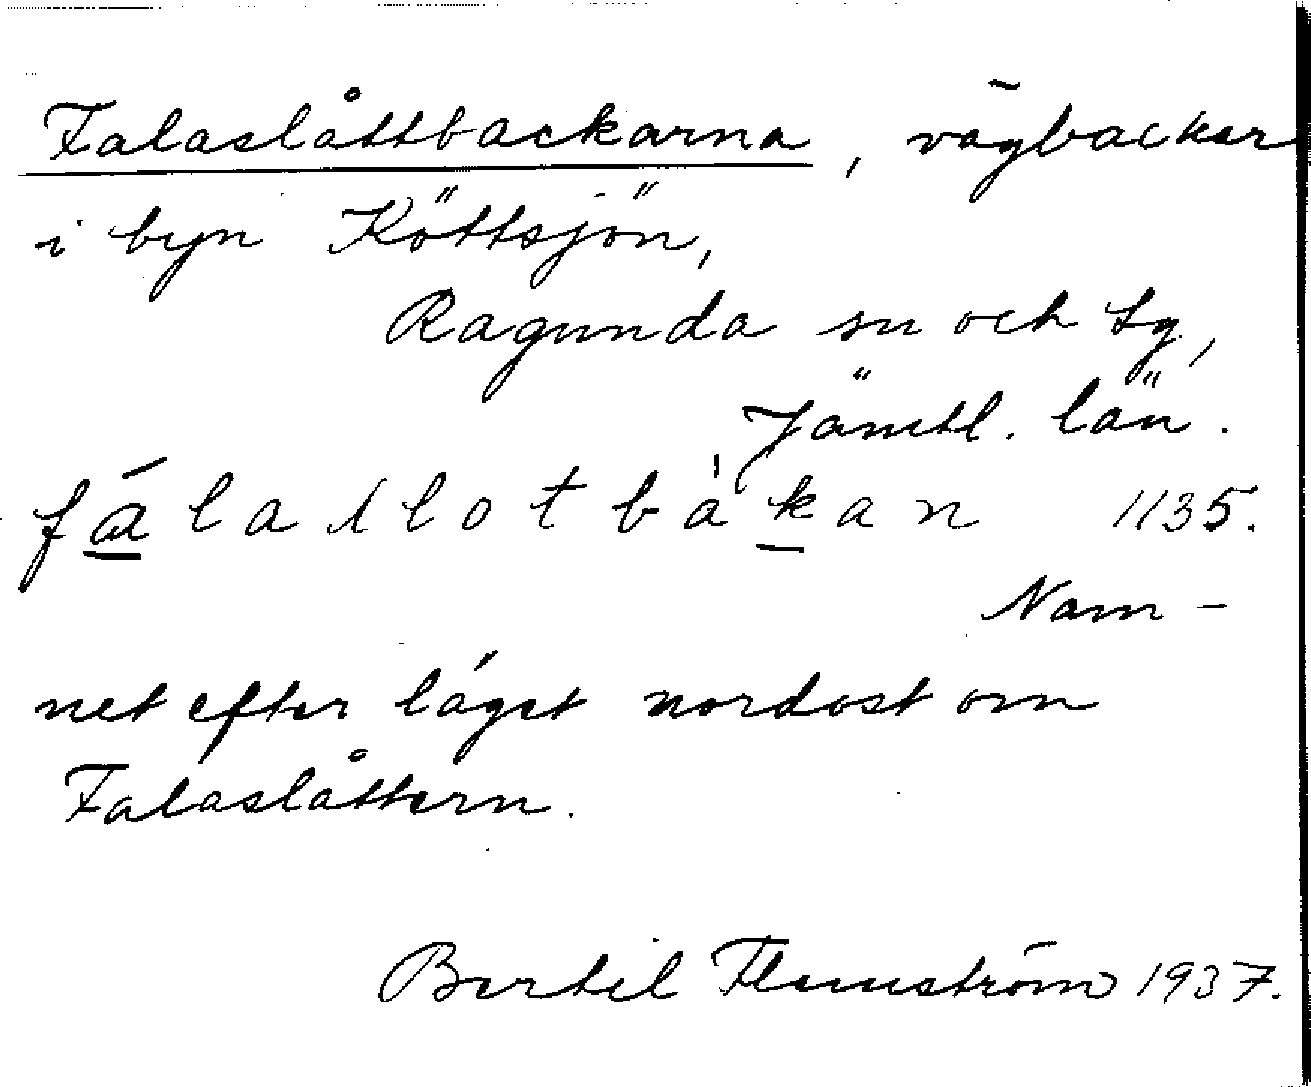 Falaslåttbackarna, vägbackar
i byn Köttsjön,
Ragunda sn och tg,
Jämtl. län.
fálaslotbàkan 1135.
Nam-
net efter läget nordost om
Falaslåttern.
Bertil Flemström 1937.